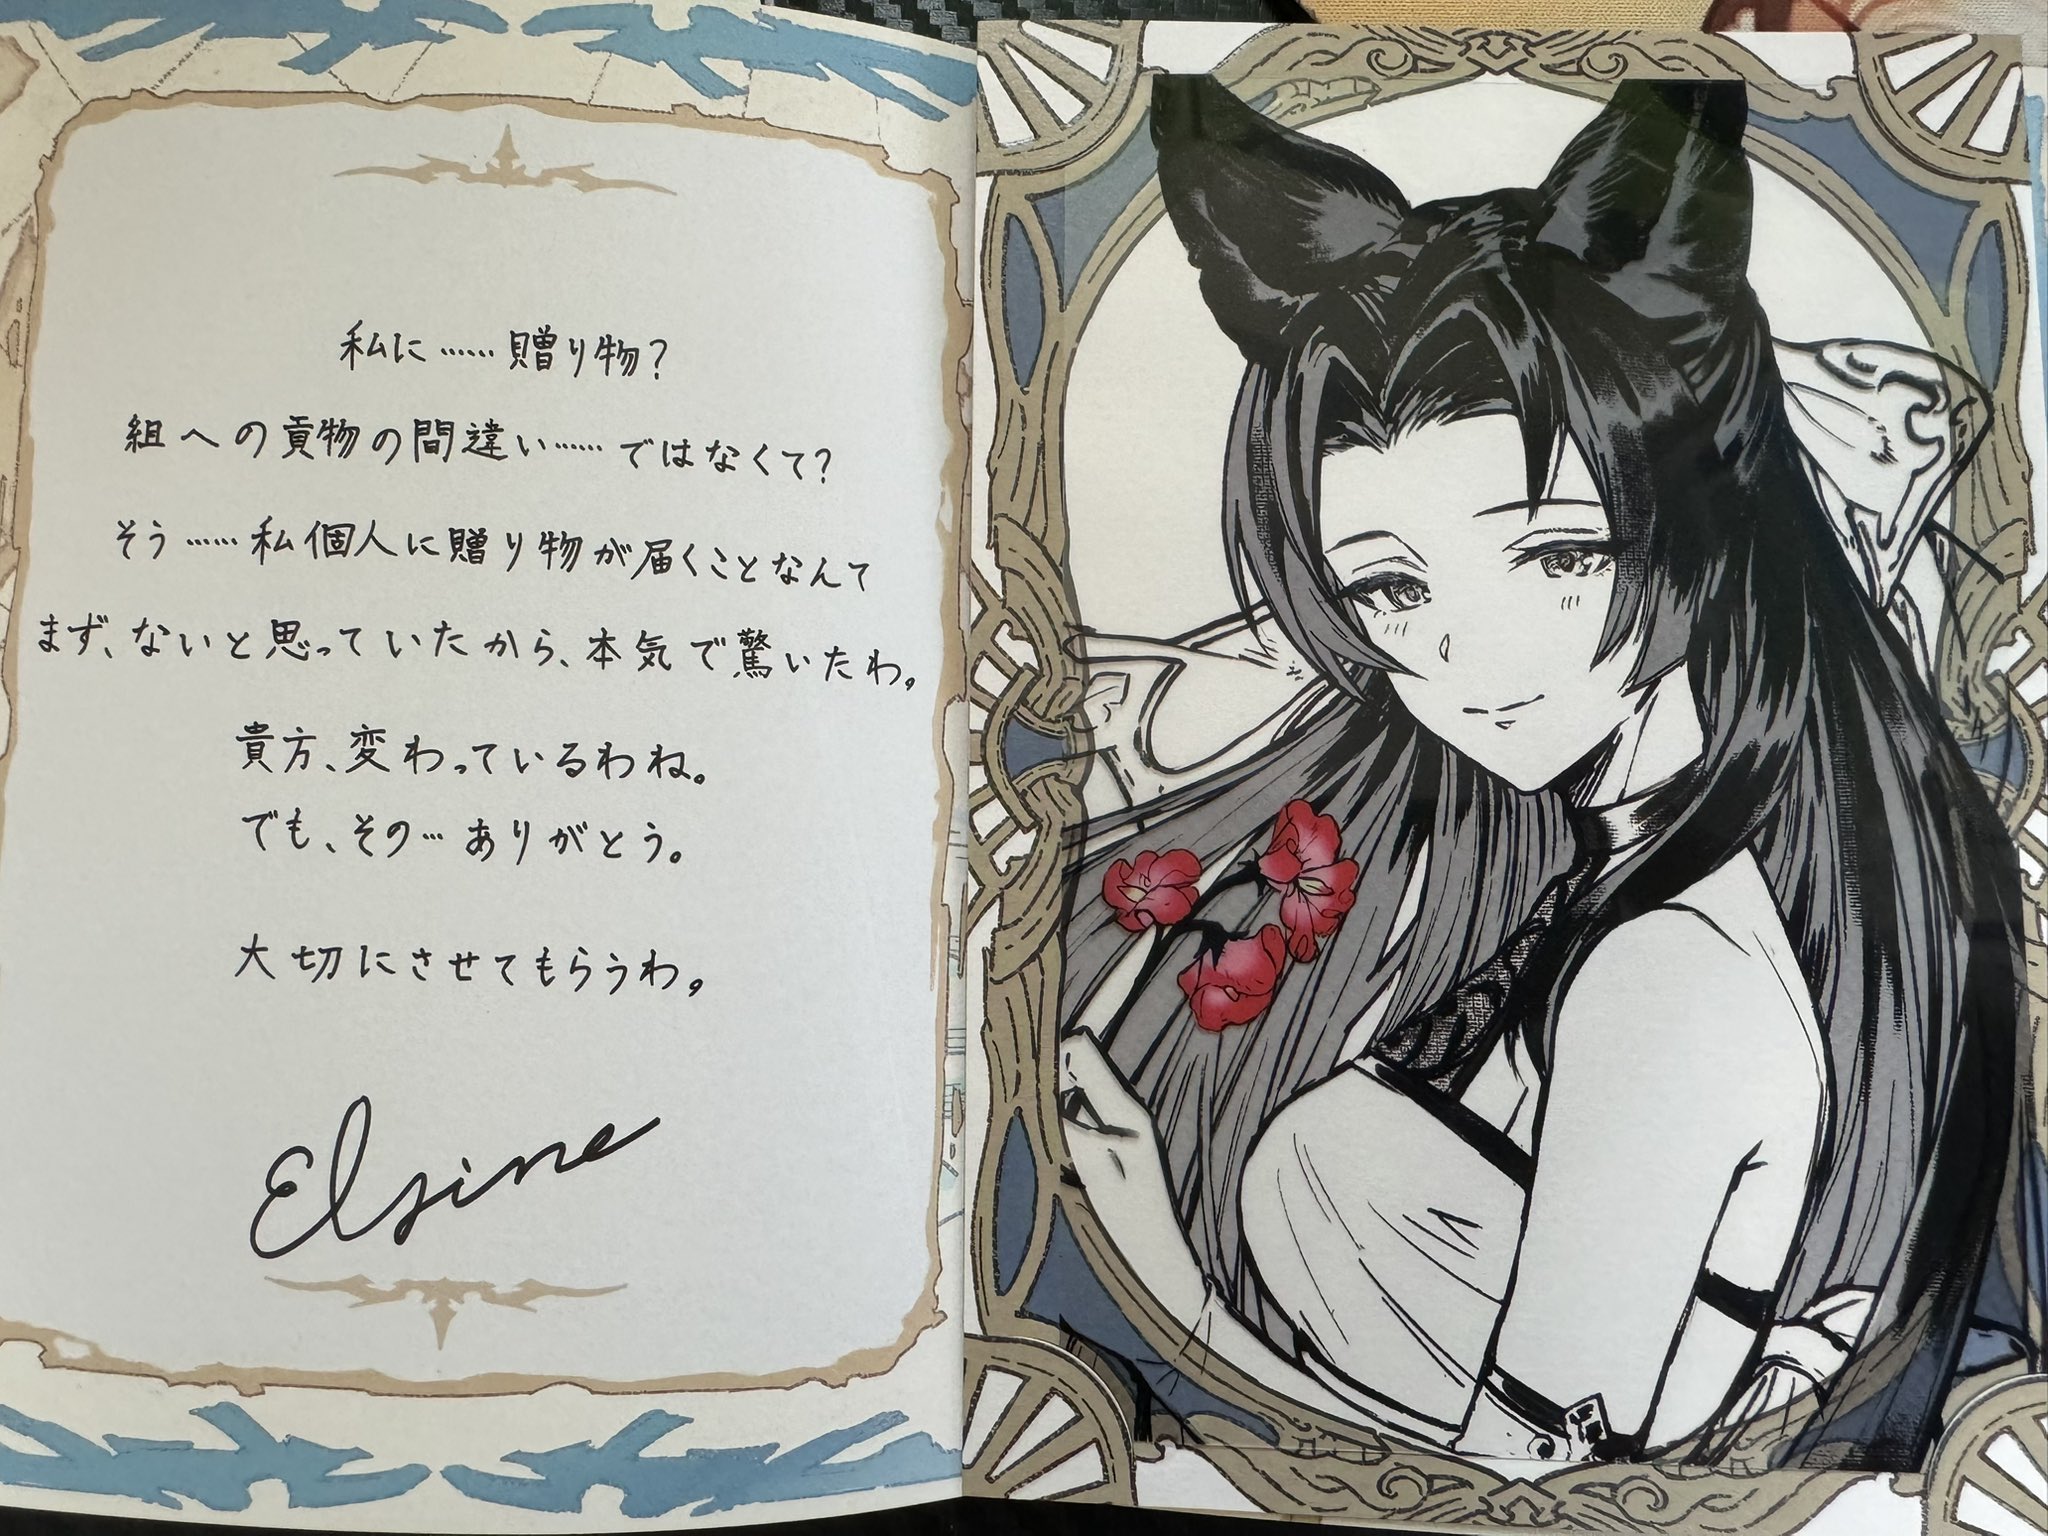 私に……贈り物？
組への貢物の間違い……ではなくて？
そう……私個人に贈り物が届くことなんて
まず、ないと思っていたから、本気で驚いたわ。
貴方、変わっているわね。
でも、その…ありがとう。
大切にさせてもらうわ。
Elsine